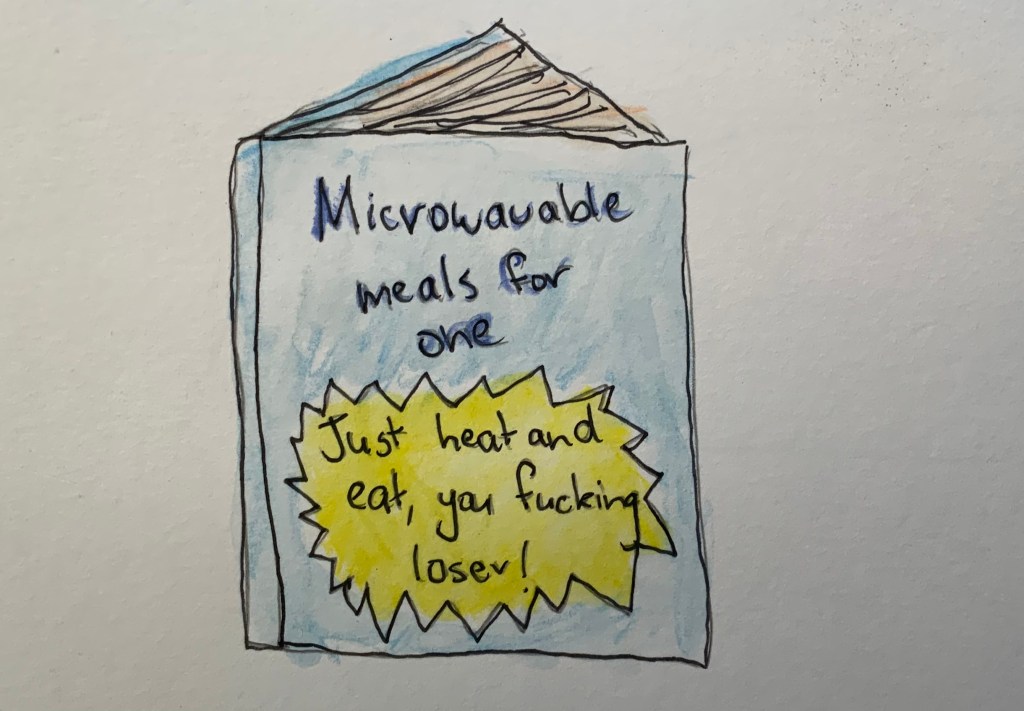 Microwavable
meals for
one
Just heat and
eat, you fucking
loser!